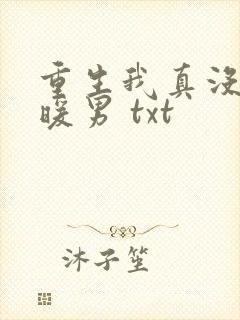 重生我真没
暖男 txt
沐子笙